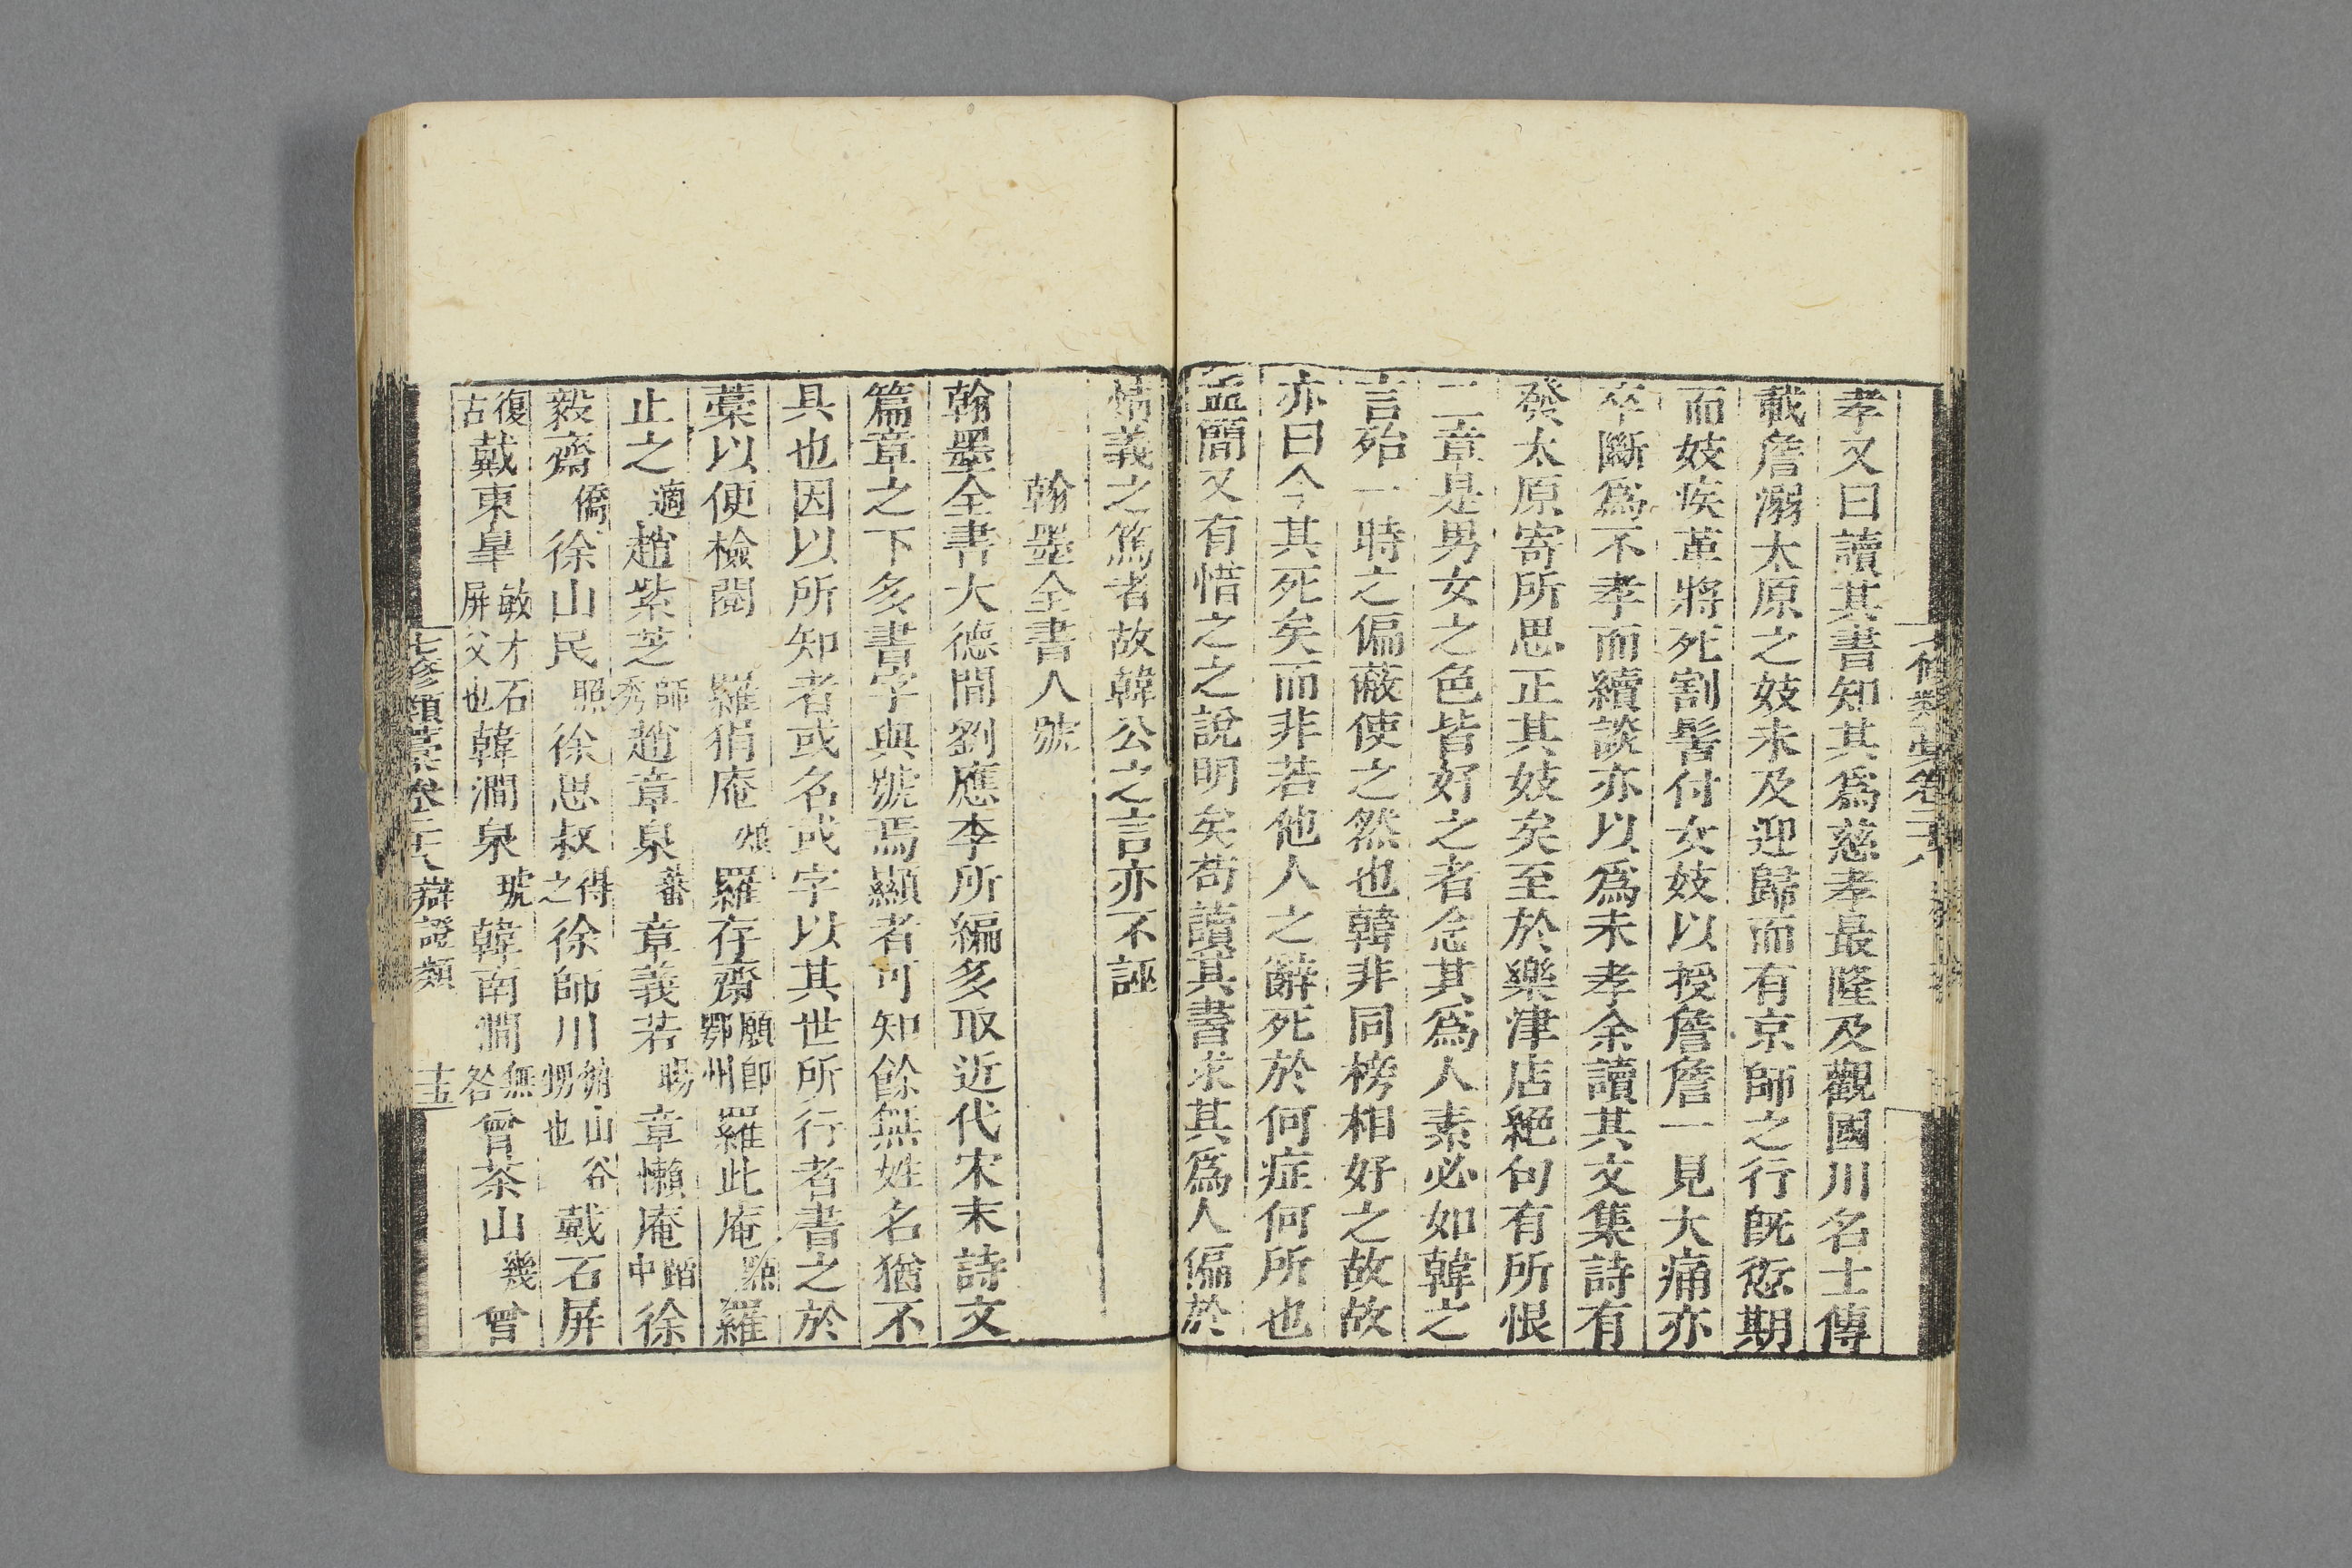 孝又曰讀其書知其爲慈孝最隆及觀國川名士傳
載詹溺太原之妓未及迎歸而有京師之行旣愆期
而妓疾革將死割髻付女妓以授詹詹一見大痛亦
卒斷爲不孝而續談亦以爲未孝余讀其文集詩有
發太原寄所思正其妓矣至於樂津店絕句有所恨
二章是男女之色皆好之者念其爲人素必如韓之
言殆一時之偏蔽使之然也韓非同榜相好之故故
亦曰今其死矣而非若他人之辭死於何症何所也
孟簡又有惜之之說明矣苟讀其書求其爲人偏於
情義之篤者故韓公之言亦不誣
翰墨全書人號
翰墨全書大德間劉應李所編多取近代宋末詩文
篇章之下多書字與號焉顯者可知餘無姓名猶不
具也因以所知者或名或字以其世所行者書之於
藁以便檢閱 羅狷庵 羅存齋願即鄂州羅此庵 羅
止之適趙紫芝師秀趙章泉蕃章義若 章懶庵 徐
毅齋僑徐山民照徐思叔得之徐師川俯山谷甥也戴石屏
復古戴東臯敏才石屏父也韓澗泉琥韓南澗無咎曾茶山幾曾
七修類藁卷二十八 辯證類 十五